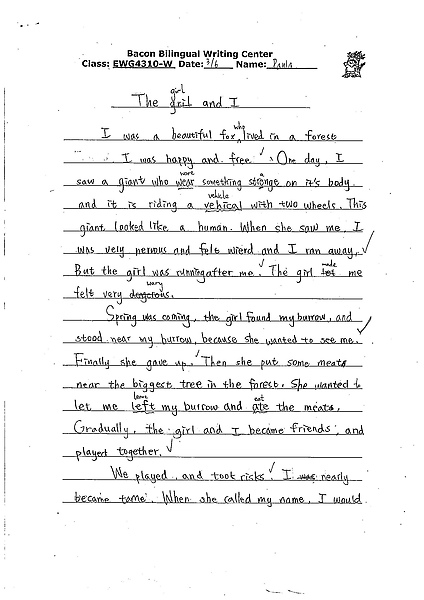 Bacon Bilingual Writing Center
Class: EWG4310-W Date: 3/6 Name: Paula
girl
The gril and I
who
I was a beautiful fox lived in a forest
I was happy and free. One day, I
wore
saw a giant who wear something strange on it's body.
vehicle
and it is riding a vehical with two wheels. This
giant looked like a human. When she saw me, I
was very nervous and felt wierd and I ran away.
made
But the girl was running after me. The girl let me
worry
felt very dangerous.
Spring was coming, the girl found my burrow, and
stood near my burrow, because she wanted to see me.
Finally she gave up. Then she put some meats
near the biggest tree in the forest. She wanted to
leave eat
let me left my burrow and ate the meats.
Gradually, the girl and I became friends, and
played together.
We played and took risks. I was nearly
became tame. When she called my name, I would